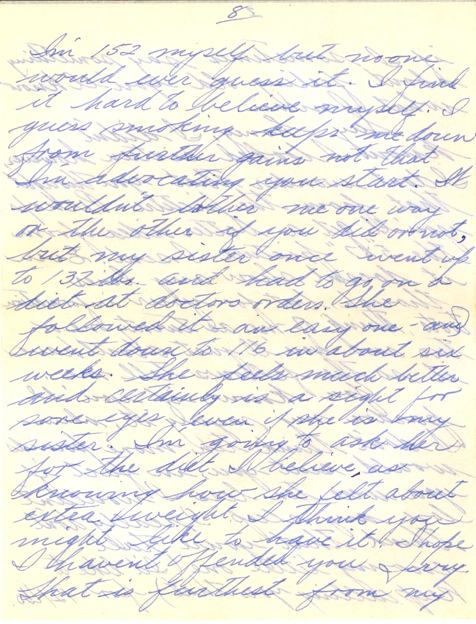 8
I'm 152 myself but no one
would ever guess it. I find
it hard to believe myself. I
guess smoking keeps me down
from further gains not that
I'm advocating you start. It
wouldn't bother me one way
or the other if you did or not,
but my sister once went up
to 132 lbs. and had to go on a
diet at doctors orders. She
followed it an easy one - and
went down to 116 in about six
weeks. She feels much better
and certainly is a sight for
sore eyes, even if she is my
sister. I'm going to ask her
for the diet I believe, as
knowing how she felt about
extra weight I think you
might like to have it. I hope
I haven't offended you Jerry.
That is furthest from my